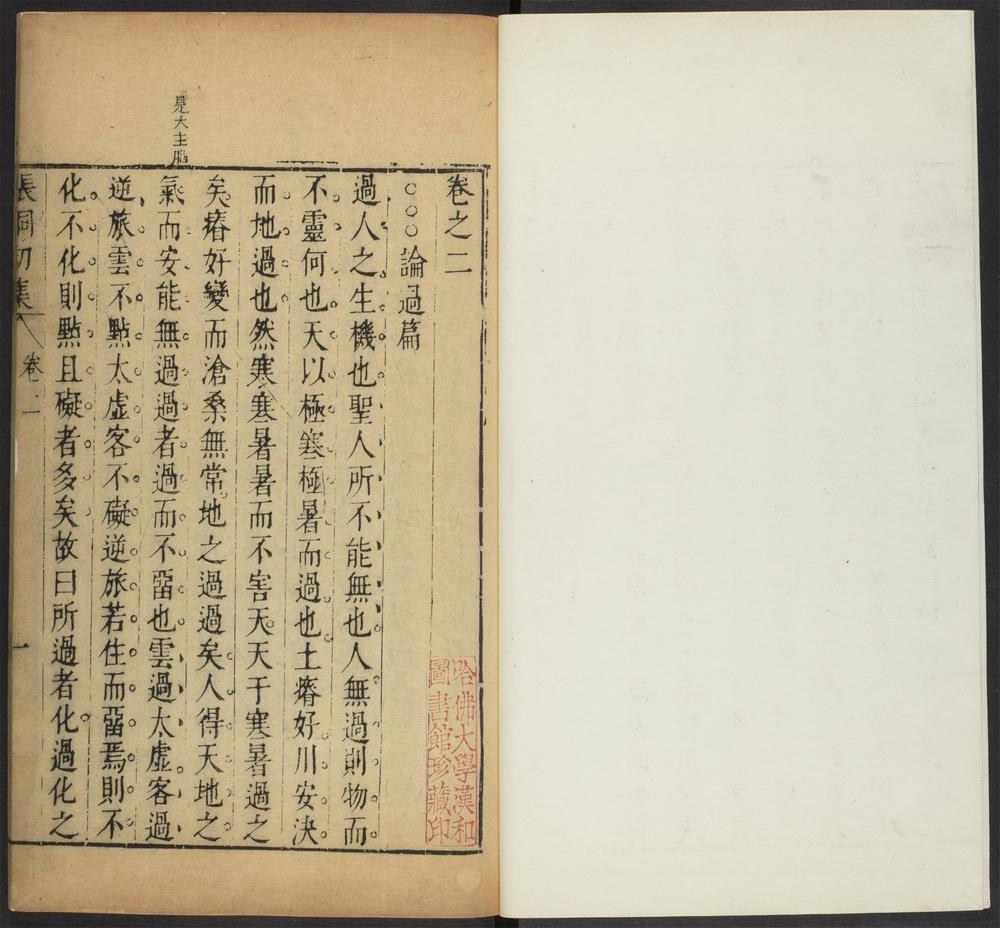 卷之二
○○○論過篇
過人之生機也聖人所不能無也人無過則物而
不靈何也天以極寒極暑而過也土瘠好川安決
而地過也然寒寒暑暑而不害天天于寒暑過之
矣瘠好變而滄桑無常地之過過矣人得天地之
氣而安能無過過者過而不畱也雲過太虛客過
逆旅雲不點太虛客不礙逆旅若住而畱焉則不
化不化則點且礙者多矣故曰所過者化過化之
是大主腦
初集
卷二
一
哈佛大學漢和
圖書館珍藏印